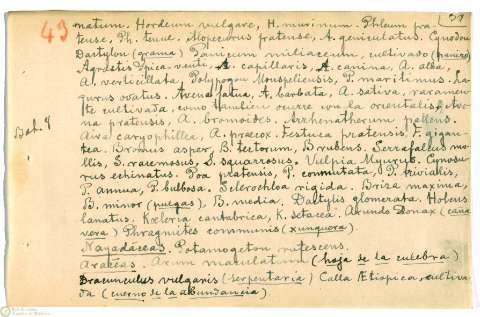 43
37
natum. Hordeum vulgare, H. murinum. Phleum pra-
tense, Ph. tenue. Alopecurus pratense, A. geniculatus. Cynodon
Dactylon (grama) Panicum miliaceum, cultivado (panizo)
Agrostis Spica venti, A. capillaris, A. canina, A. alba,
A. verticillata, Polypogon Monspeliensis, P. maritimus. La-
gurus ovatus. Avena fatua, A. barbata, A. sativa, raramen-
te cultivada, como tambien ocurre con la orientalis, Ave-
na pratensis, A. bromoides. Arrhenatherum pallens.
Aira caryophillea, A. praecox. Festuca pratensis. F. gigan-
tea. Bromus asper, B. tectorum, B. rubens. Serrafalcus mo-
llis, S. racemosus, S. squarrosus. Vulpia Myurus. Cynosu-
rus echinatus. Poa pratensis, P. conmutata, P. trivialis,
P. annua, P. bulbosa. Sclerochloa rigida. Briza maxima,
B. minor (pulgas), B. media. Dactylis glomerata. Holcus
lanatus. Kœleria cantabrica, K. setacea. Arundo Donax (caña
vera) Phragmites communis (xunquera).
Nayadáceas. Potamogeton rufescens.
Aráceas. Arum maculatum (hoja de la culebra)
Dracunculus vulgaris (serpentaria) Calla Ætiopica, cultiva
da (cuerno de la abundancia)